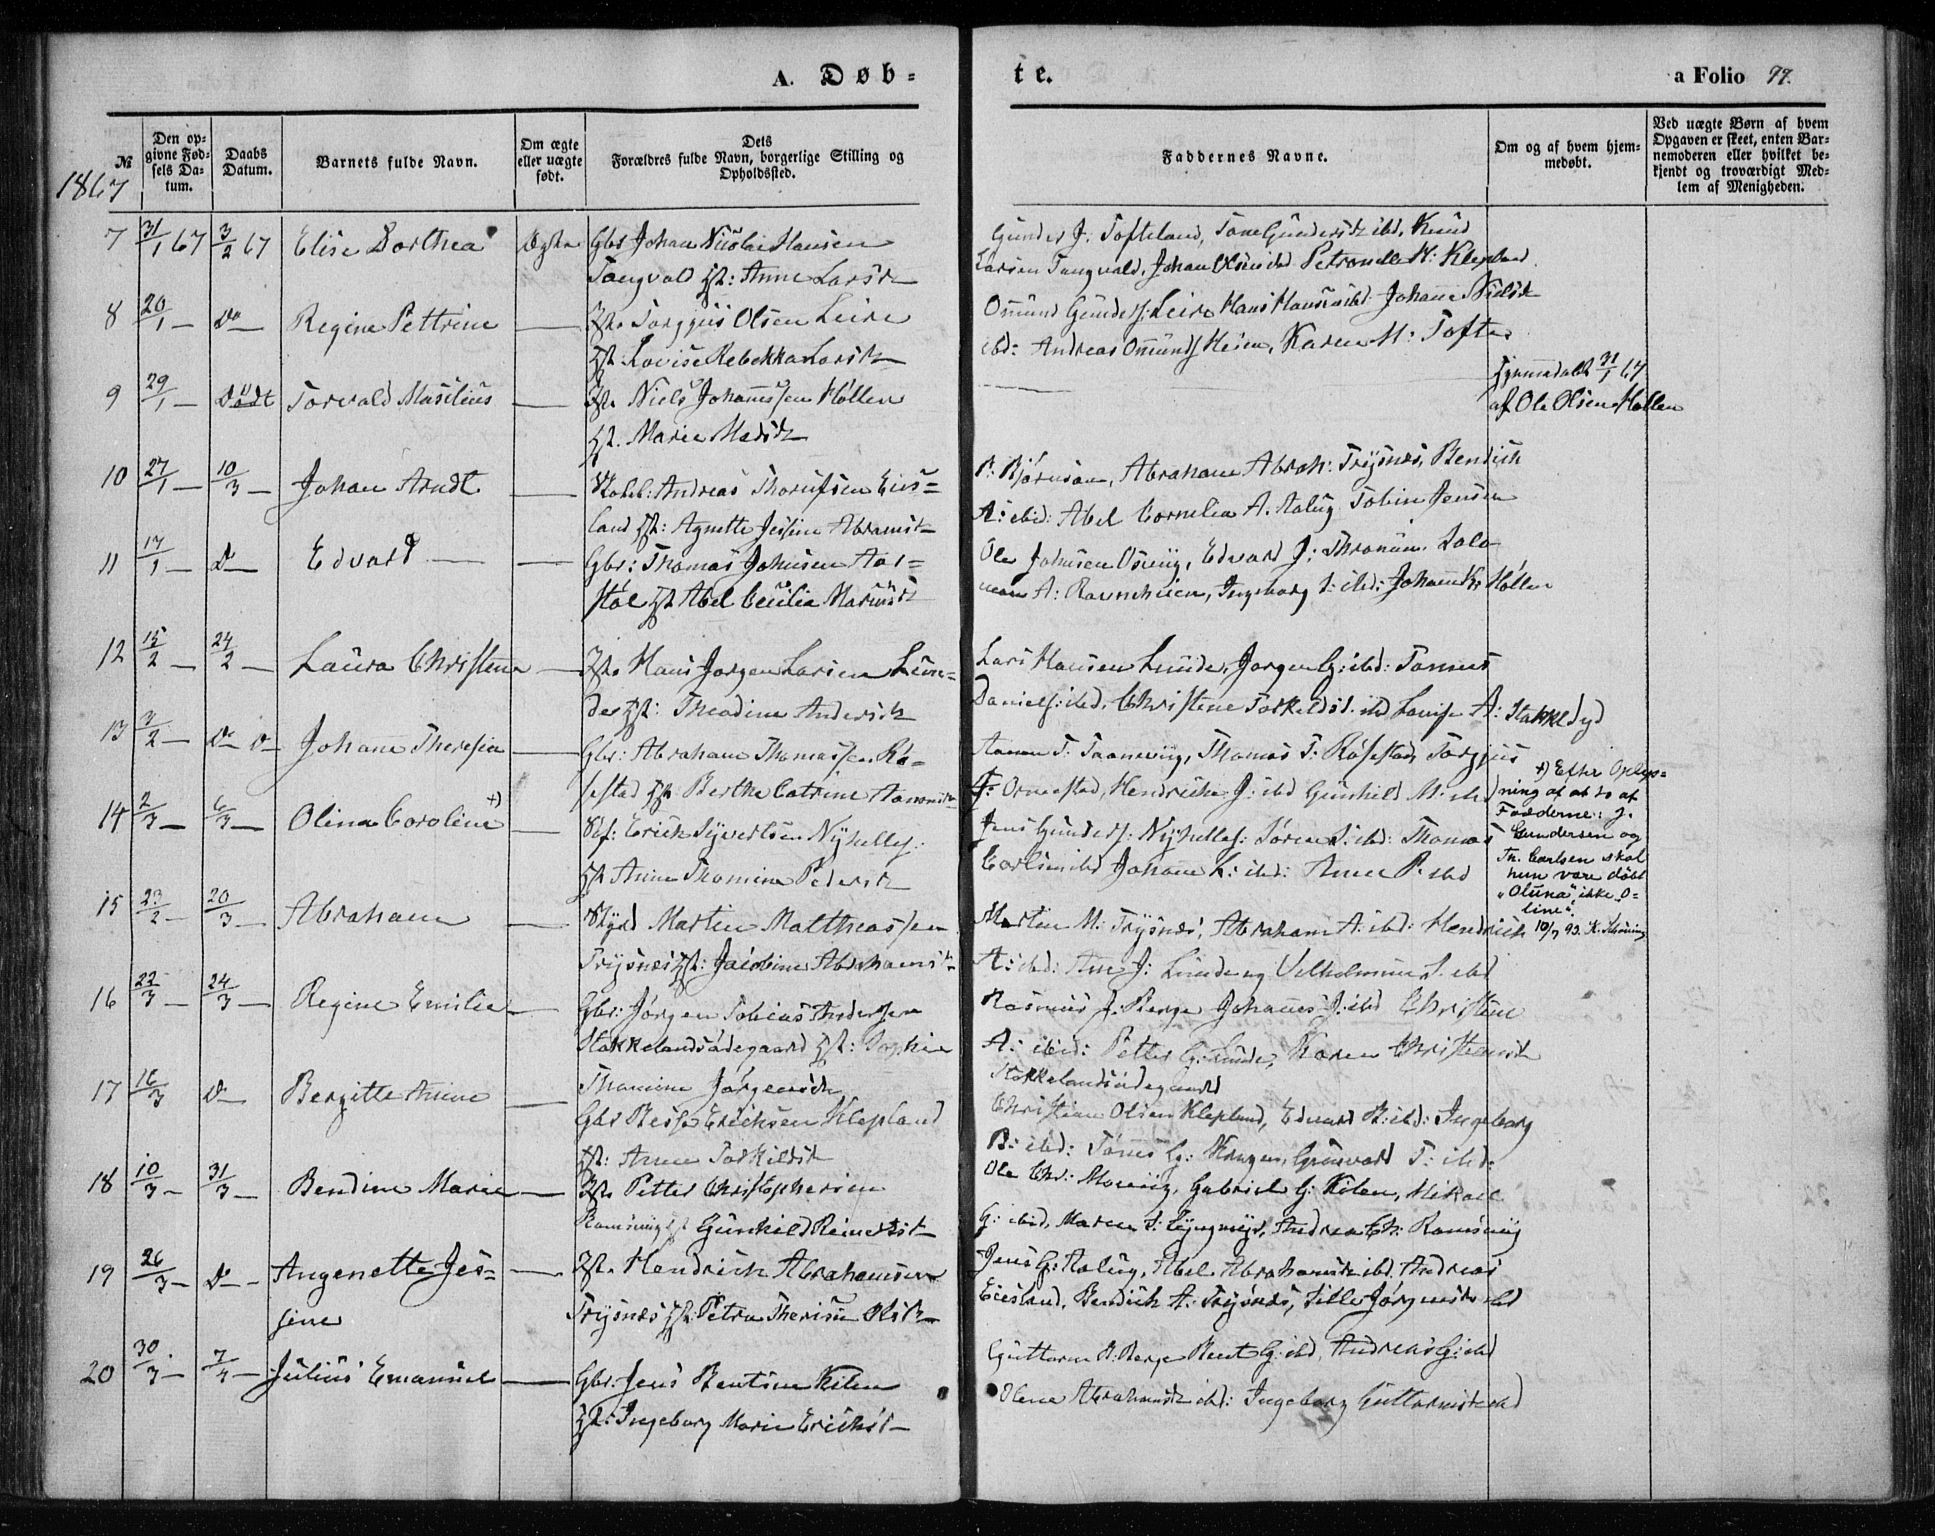 A. Døb-
te.
a Folio 77.
№
Den op-
givne Fød-
sels Da-
tum.
Daabs
Datum.
Barnets fulde Navn.
Om ægte
eller uægte
født.
Dets
Forældres fulde Navn, borgerlige Stilling og
Opholdssted.
Faddernes Navne.
Om og af hvem hjem-
medøbt.
Ved uægte Børn af hvem
Opgaven er skeet, enten Bar-
nemoderen eller hvilket be-
kjendt og troværdigt Med-
lem af Menigheden.
1867
7 31/1 67 3/2 67 Elise Dorthea Ægte Gbr Johan Nicolai Hansen
Tangvald Hst: Anne Larsdt
Gunder J. Tofteland, Tone Gundersdt ibd, Knud
Larsen Tangvald, Johan Olsen ibd Petronelle H: Klepland
8 20/1 Do Regine Pettrine Torggus Olsen Leire
Hst Lovise Rebekka Larsdt
Omund Gunders: Leire Hans Hansen ibd: Johanne Nielsdt
ibd: Andreas Omunds Heien, Karen M: Tofte
9 29/1 Dødt Torvald Masilius Niels Johannssen Høllen
Hst. Marie Madsdt
Hjemmedøbt 31/1 67
af Ole Olsen Høllen
10 27/1 10/3 Johan Arndt Andreas Thorufsen Eies-
land Hst: Agnette Jessine Abramsdt
P: Bjørnson, Abraham Abrah: Trysnes, Bendich
A: ibid: Abel Cornelia A. Aalug Tobine Jensen
11 17/1 Do Edvard Gbr: Thomas Johnsen Aar-
støl Hst Abel Cecilia
Ole Johnsen Osevig, Edvard J: Salo-
mon A: Ravneheien, Ingeborg ibd: Johanne Kr Høllen
12 15/2 24/2 Laura Christence Hans Jørgen Larsen Lun-
de Hst: Theodine Andersdt
Lars Hansen Lunde, Jørgen G: ibd: Tønnes
Daniels: ibd, Christene Torkelds: ibd Lovise A: Stakkelyd
13 3/2 Do Do Johanne Theresia Gbr: Abraham Thomassen Rø-
sestad Hst Berthe Catrine Aanonsdt
Aanon T: Taanevig, Thomas T: Røsestad, Torgjus
T: Ormestad, Hendrikke J: ibd Gunhild M: ibd
14 2/3 6/3 Olina Caroline +) Erich Syvertsen Nyhelles:
Hst Anne Thomine Pedersdt
Jens Gunders: Nyhelles: Søren S: ibd: Thomas
Carlsen ibd Johanne K: ibd: Anne P: ibd
+) Efter Oplys-
ning af at to af
Fadderne: J.
Gundersen og
Th. Carlsen skal
hun være døbt
„Oluna", ikke „O-
line".
10/7 93.
15 23/2 20/3 Abraham Martin Matthiassen
Trysnes Hst: Jacobine Abrahamsdt
Martin M: Trysnes, Abraham A: ibd: Hendrich
A: ibd: Ane J: Lunde og Velhelmine S. ibd
16 22/3 24/3 Regine Emilie Gbr: Jørgen Tobias Andersen
Stakkelandsødegaard Hst: Sophie
Thomine Jørgensdt
Rasmus J: Berge Johannes J: ibd Christene
A: ibid: Petter G: Lunde, Karen Christensdt
Stakkelandsødegaard
17 16/3 Do Bergitte Anne Gbr Erichsen Klepland
Hst: Anne Torkildsdt
Christian Olsen Klepland, Edvard B: ibd: Ingeborg
B: ibd: Tønnes G: Gunvald T: ibd:
18 10/3 31/3 Bendine Marie Petter Christophersen
Ramsvig Hst Gunhild Reinertsdt
Ole Chr: Mosevig, Gabriel G: Kilen, Mikael
G: ibd, Maren S: Lyngmyr, Andrea Ch: Ramsvig
19 26/3 Do Angenette Jes-
sine Hendrich Abrahamsen
Trysnes Hst: Petra Therisie Olsdt
Jens G: Aalug, Abel Abrahamsdt ibd: Andreas
Eiesland, Bendich A: Trysnes, Sille Jørgensdt ibd
20 30/3 7/4 Julius Emanuel Gbr: Jens Bentsen Kilen
Hst: Ingeborg Marie Erichsdt
Guttorm B: Berge Bent G: ibd, Andreas G: ibd
Olene Abrahamsdt ibd: Ingeborg Guttormsdt ibd